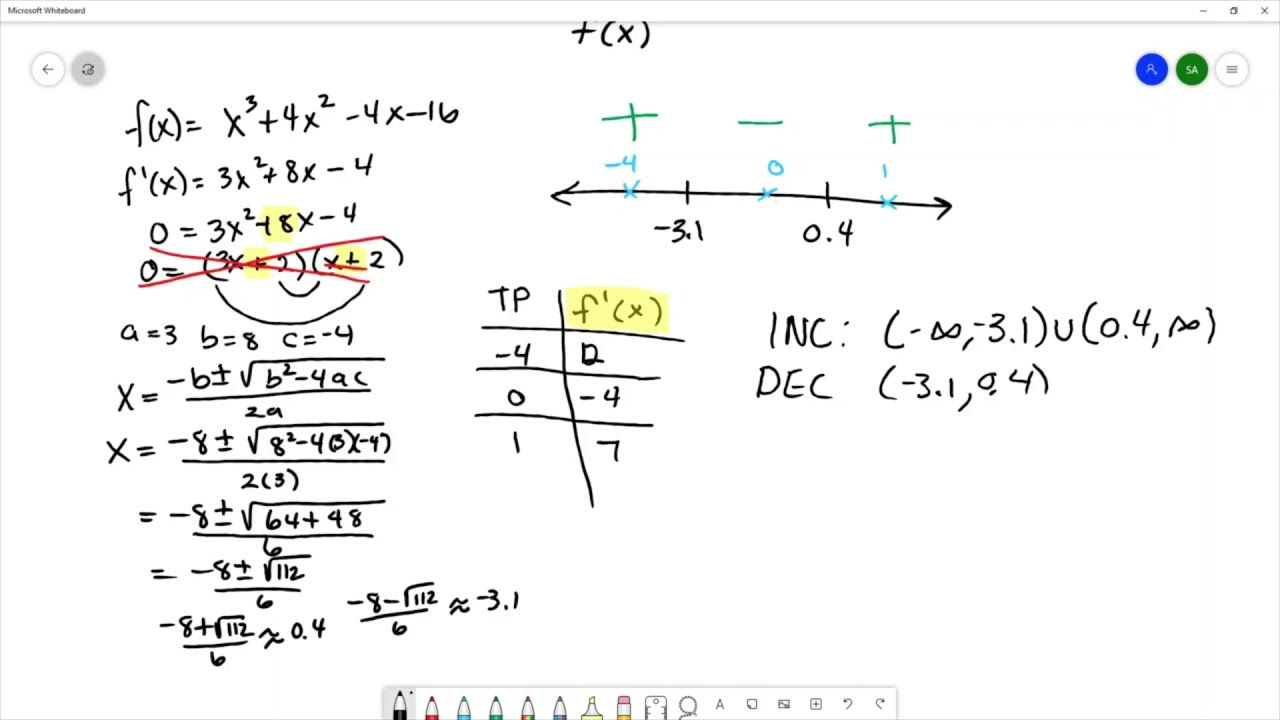 Microsoft Whiteboard
f(x)
SA
f(x) = x³+4x²-4x-16
f'(x) = 3x²+8x-4
0 = 3x²+8x-4
0 = (3x+2)(x+2)
a=3 b=8 c=-4
x = -b±√b²-4ac
2a
x = -8±√8²-4(3)(-4)
2(3)
= -8±√64+48
6
= -8±√112
6
-8+√112 ≈ 0.4
6
-8-√112 ≈ -3.1
6
+ — +
-4 0 1
-3.1 0.4
TP f'(x)
-4 12
0 -4
1 7
INC: (-∞,-3.1)∪(0.4,∞)
DEC (-3.1,0.4)
A